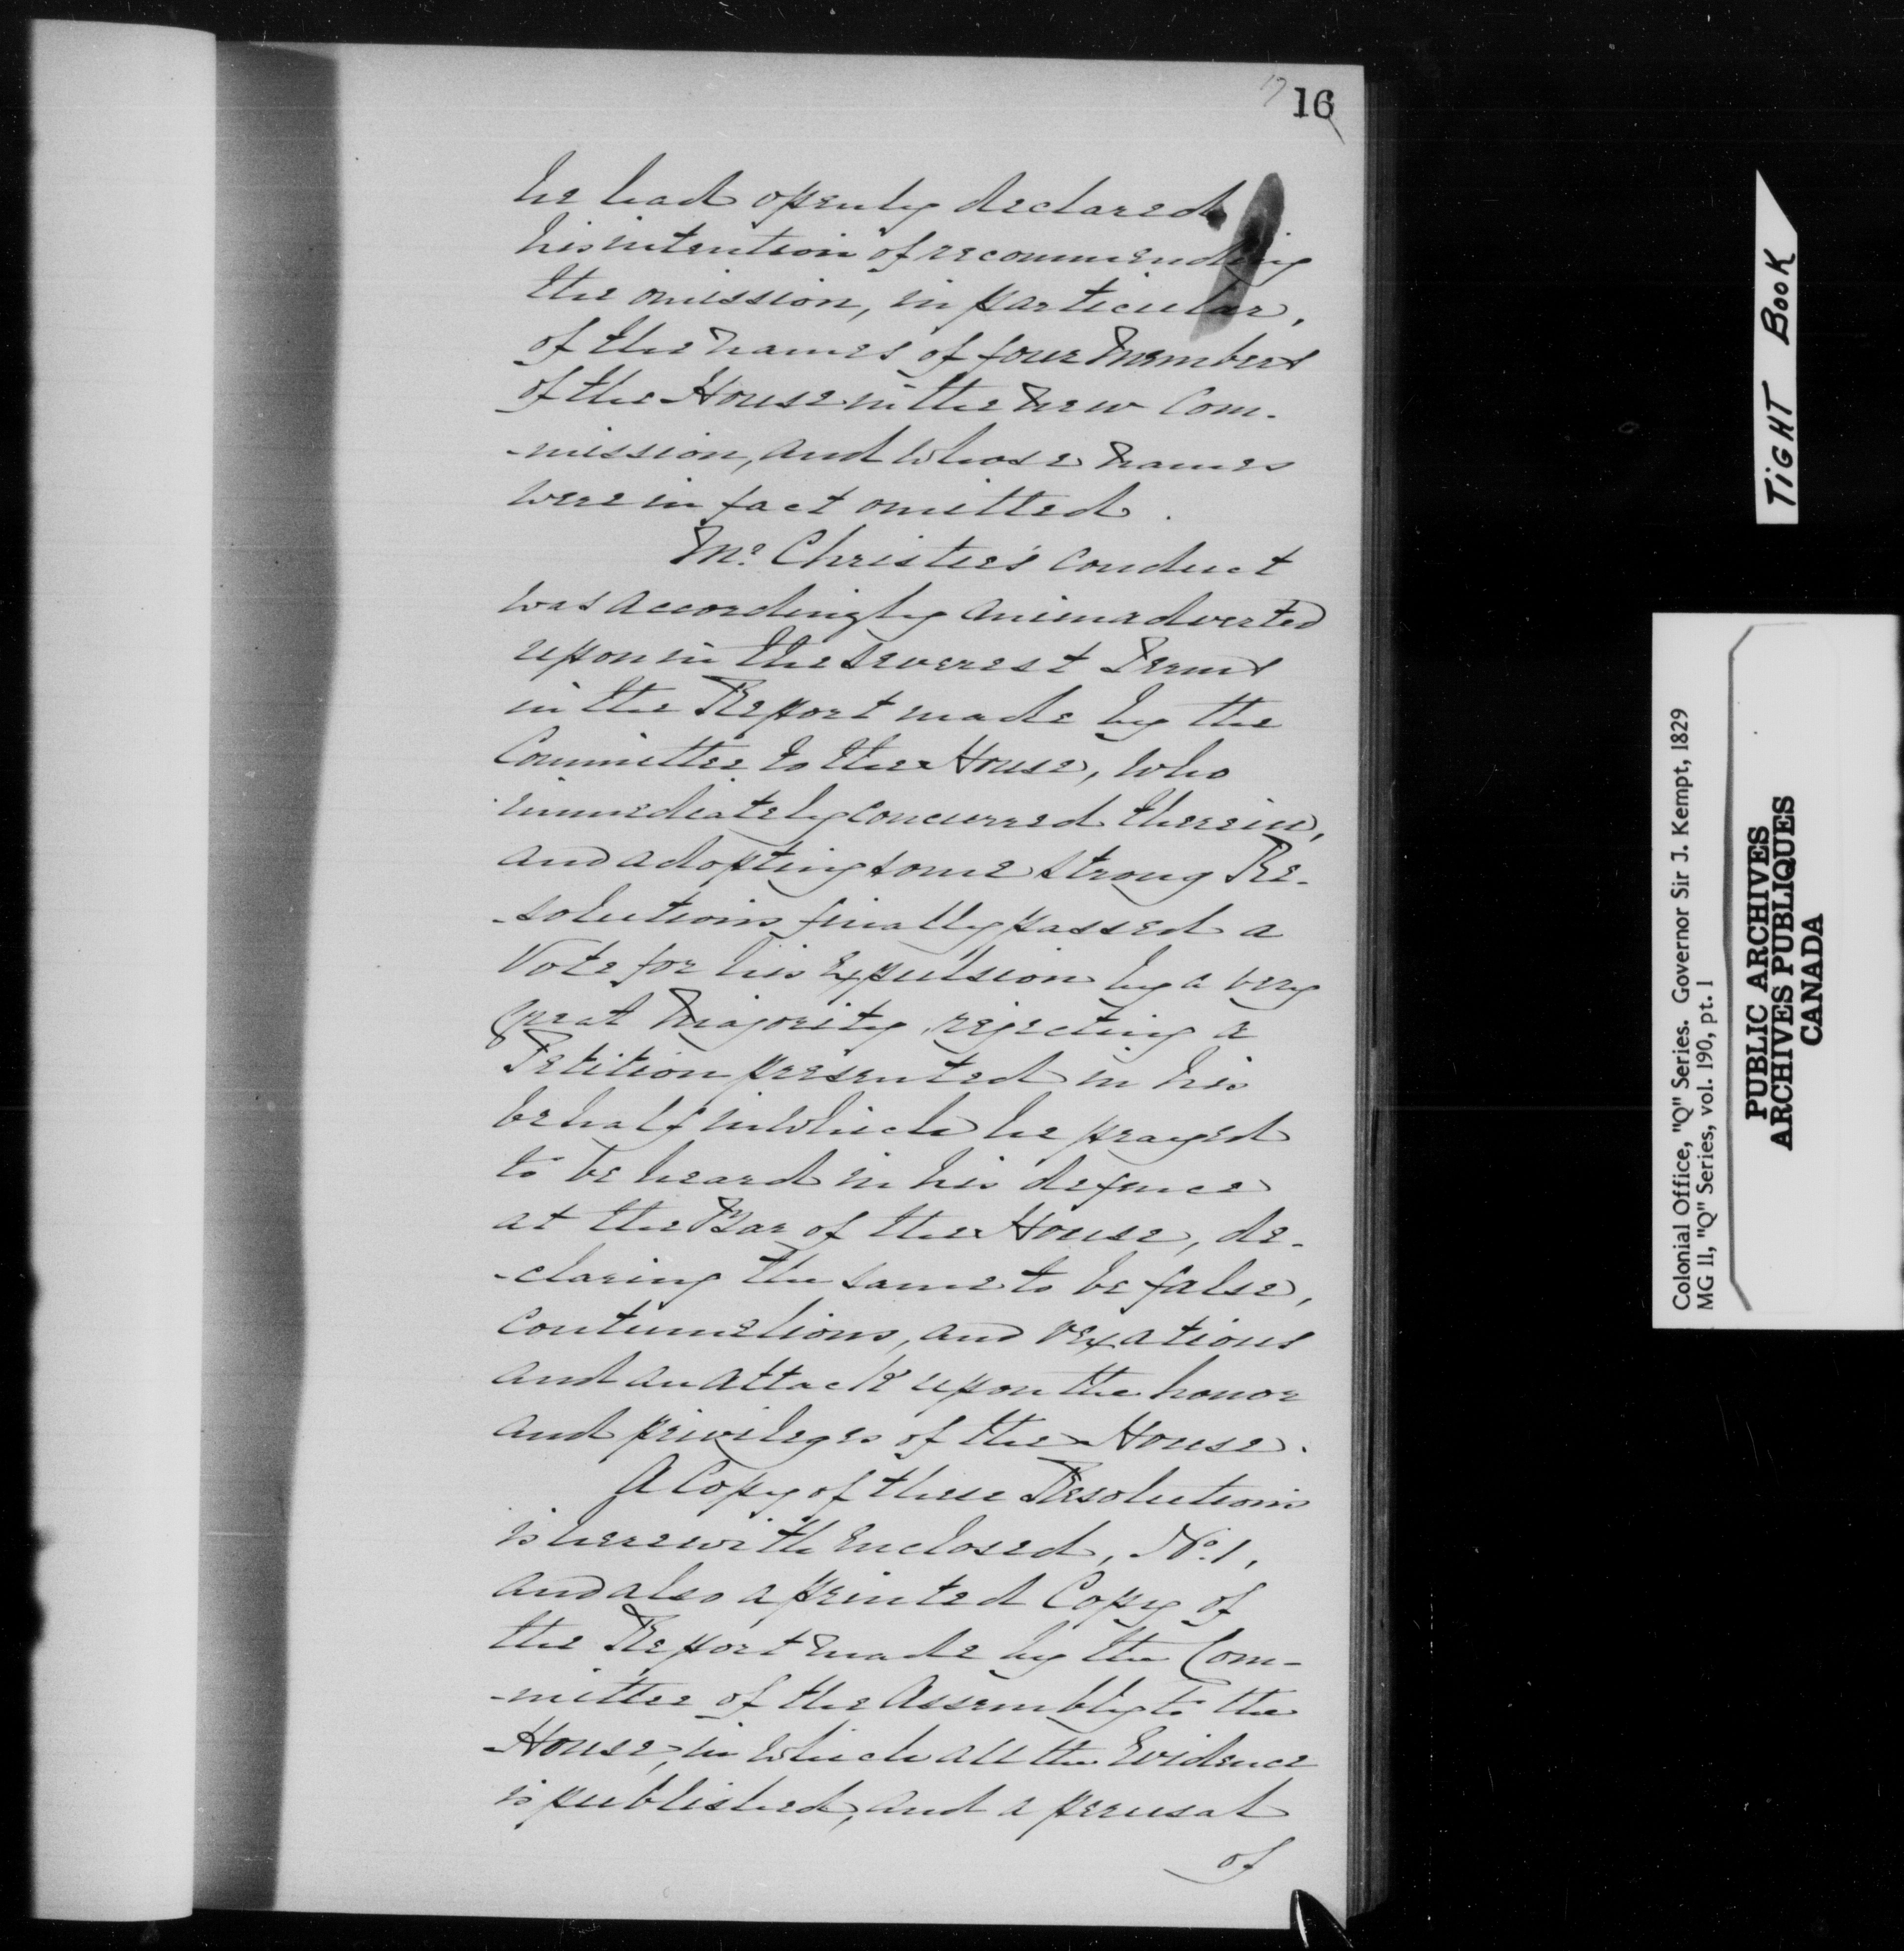 17 16
he had openly declared
his intention of recommending
the omission, in particular,
of the names of four Members
of the House in the new Com-
-mission, and whose names
were in fact omitted.
Mr. Christie's conduct
was accordingly animadverted
upon in the severest terms
in the Report made by the
Committee to the House, who
immediately concurred therein,
and adopting some strong Re-
-solutions finally passed a
Vote for his Expulsion by a very
great Majority, rejecting a
Petition presented in his
behalf in which he prayed
to be heard in his defence
at the Bar of the House, de-
-claring the same to be false,
contumelious, and vexatious
and an attack upon the honor
and privileges of the House.
A Copy of these Resolutions
is herewith Enclosed, No. 1,
and also a printed Copy of
the Report made by the Com-
-mittee of the Assembly to the
House, in which all the Evidence
is published, and a perusal
of
TIGHT BOOK
Colonial Office, "Q" Series. Governor Sir J. Kempt, 1829
MG 11, "Q" Series, vol. 190, pt. 1
PUBLIC ARCHIVES
ARCHIVES PUBLIQUES
CANADA